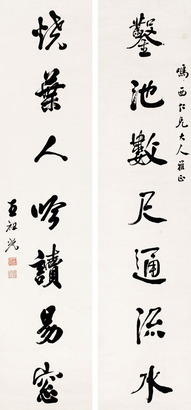 鳴西仁兄大人雅正
鑿池數尺通流水
燒葉人吟讀易窓
王祖光